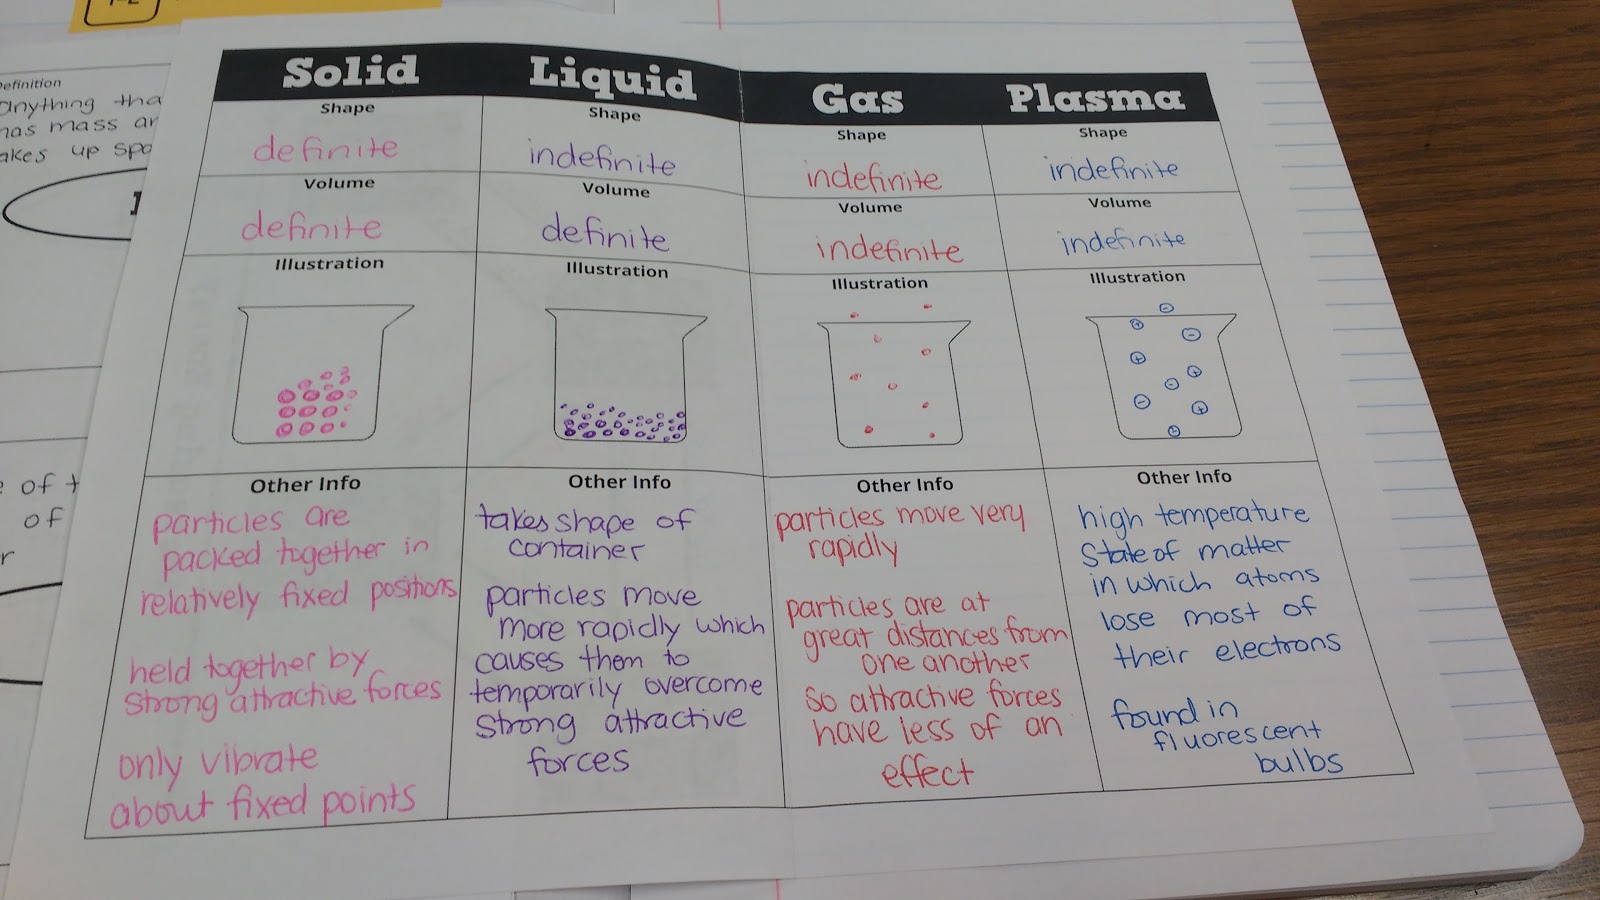 Definition
anything tha
has mass ar
akes up spa
e of t
of
r
Solid
Shape
definite
Volume
definite
Illustration
Other Info
particles are
packed together in
relatively fixed positions
held together by
strong attractive forces
only vibrate
about fixed points
Liquid
Shape
indefinite
Volume
definite
Illustration
Other Info
takes shape of
container
particles move
more rapidly which
causes them to
temporarily overcome
strong attractive
forces
Gas
Shape
indefinite
Volume
indefinite
Illustration
Other Info
particles move very
rapidly
particles are at
great distances from
one another
so attractive forces
have less of an
effect
Plasma
Shape
indefinite
Volume
indefinite
Illustration
Other Info
high temperature
State of matter
in which atoms
lose most of
their electrons
found in
fluorescent
bulbs